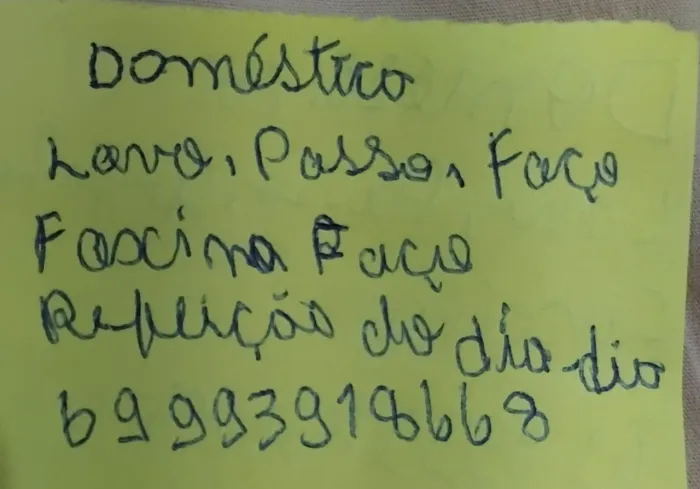 Doméstico
Lavo, Passo, Faço
Fascina Faço
Refeição do dia-dia
69993918668